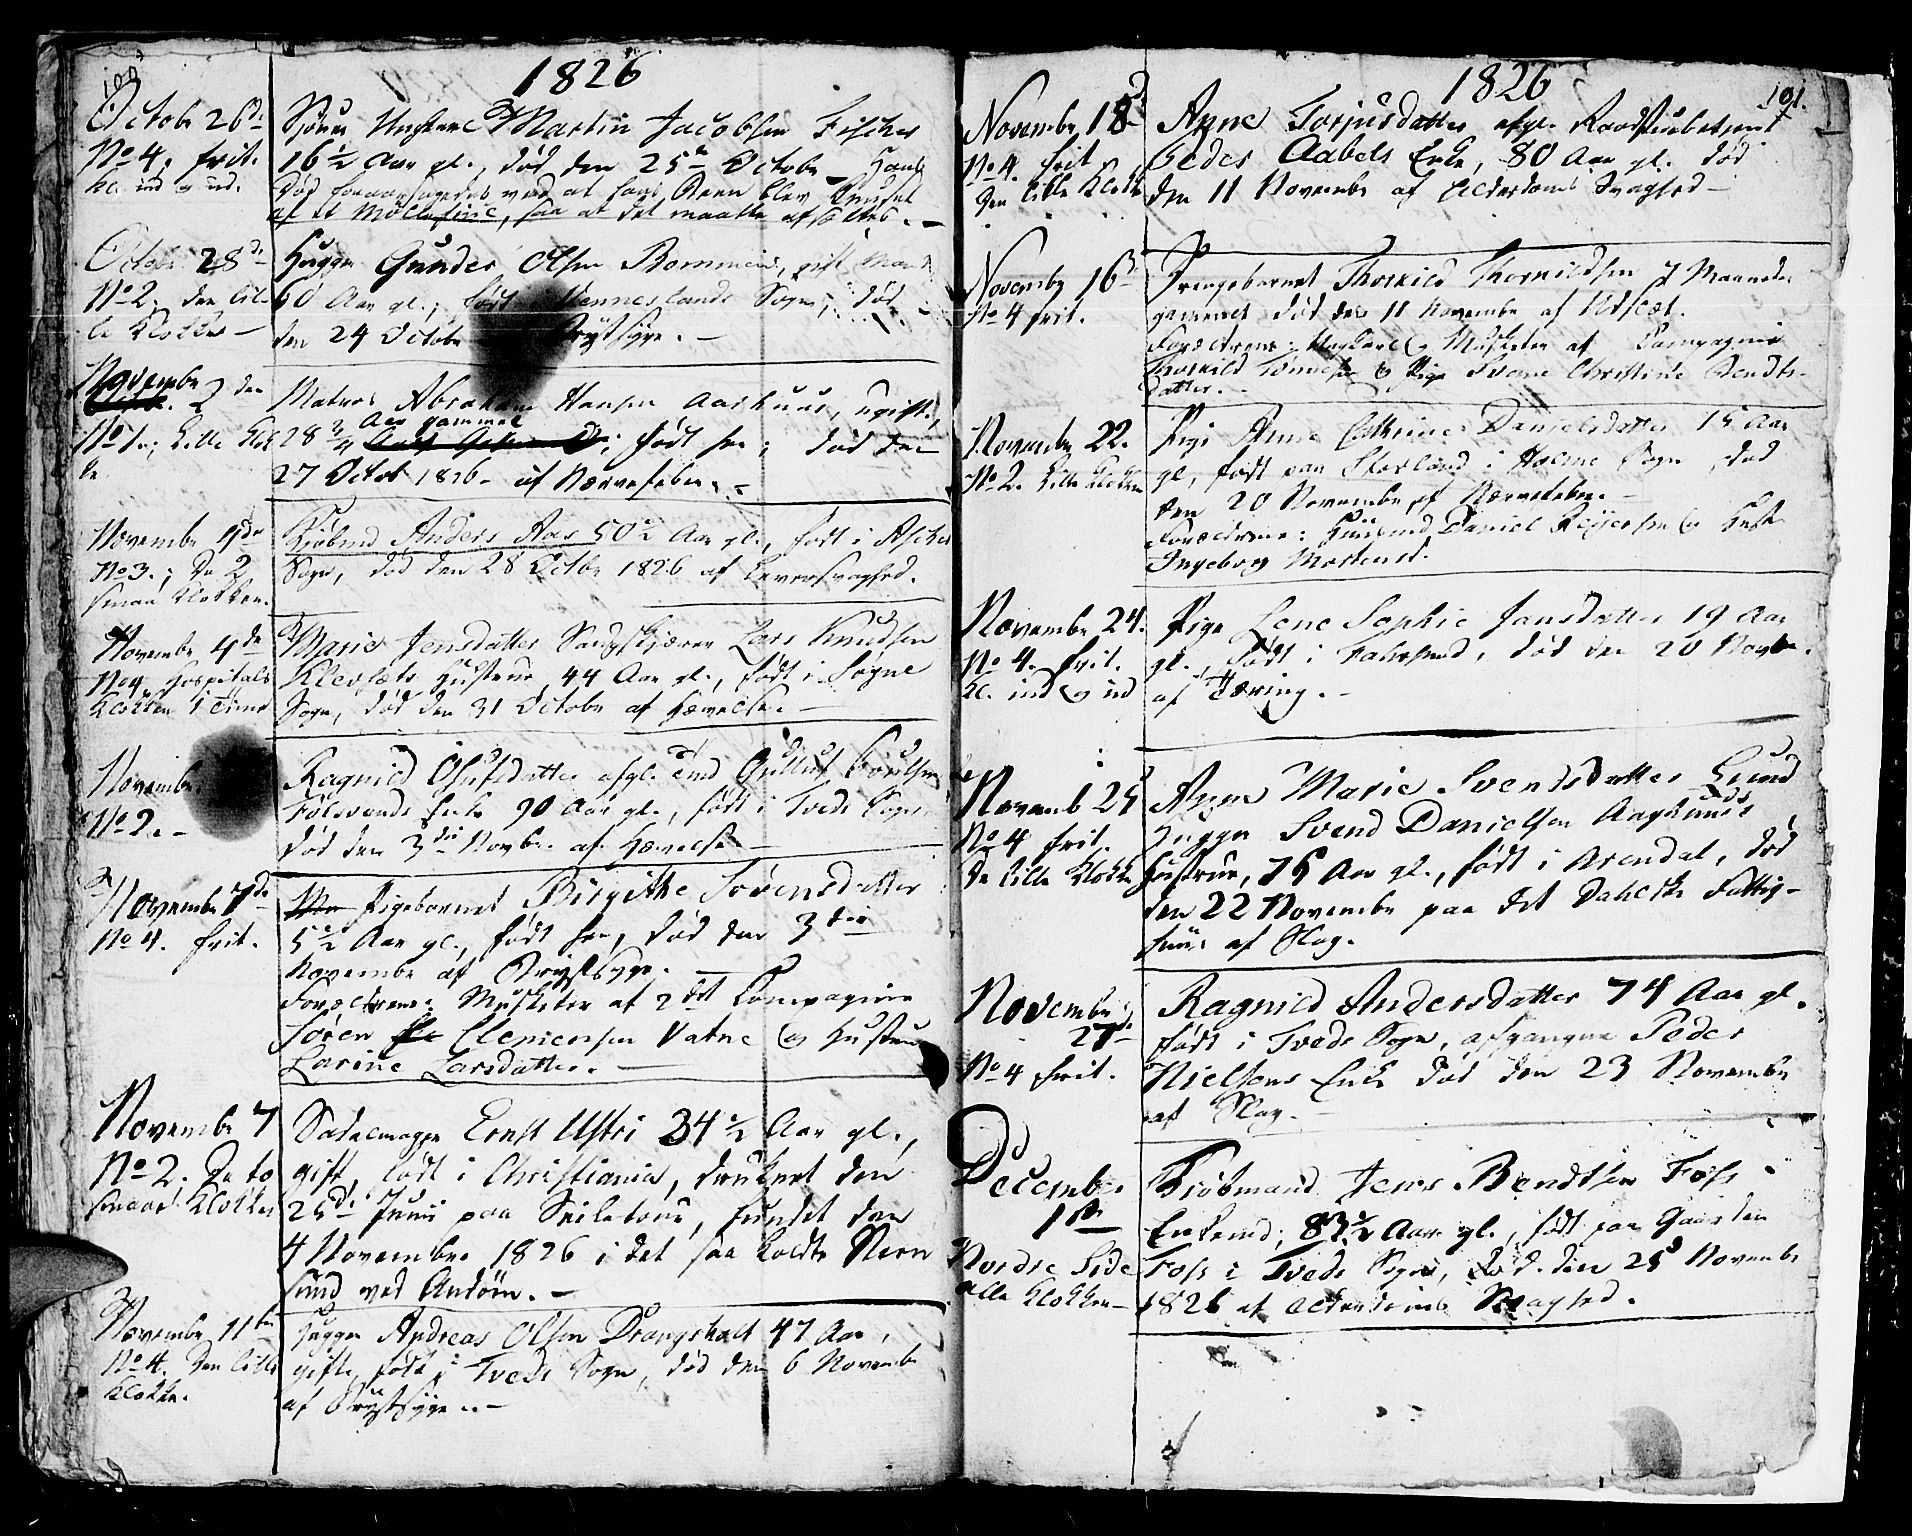 100
1826
Octobr 26d.
No 4. frit.
Kl. ind og ud.
Martin Jacobsen Fischer
16 1/2 Aar gl., død den 25de Octobr Hans
Død foraarsagedes ved at hans Been blev knuset
af et Møllehiul, saa at det maatte afsættes. -
Octobr 28d.
No 2. den lil-
le Klokke -
Gunder Olsen gift Mand
60 Aar gl., født i Wenneslands Sogn, død
den 24 Octobr Brystsyge. -
Novembr 2 den
No 1. Lille Klok
ke
Matros Abraham Hansen Aarhuus, ugift,
28 3/4 Aar gammel; født her; død den
27 Octobr 1826 - af Nervefeber. -
Novembr
No 3.; De 2
smaa Klokker.
Kiøbmd Anders Aas 50 1/2 Aar gl., født i Asker
Sogn, død den 28 Octbr 1826 af Leversvaghed.
Novembr 4de
No 4. Hospitals
Klokken 1 Time
Marie Jensdatter Lars Knudsen
Hustrue, 44 Aar gl., født i Søgne
Sogn, død den 31 Octobr af Hævelse. -
Novembr
No 2. -
Ragnild Olufsdatter afgl. Poulsen
Enke 90 Aar gl., født i Tveds Sogn,
død den 3die Novbr. af Hævelse -
Novembr 7de
No 4. frit.
Pigebarnet Birgithe Sørensdatter
5 1/2 Aar gl., født her, død den 3die
Novembr af Brystsyge. -
Forældrene: Musketer af 2det Compagnie
Søren Clemensen Vatne og Hustrue
Larine Larsdatter. -
Novembr 7
No 2. De to
smaae Klokker
Sadelmager Ernst Ustri 34 1/2 Aar gl.,
gift, født i Christiania, druknet den
25de Junii paa Seiletour, fundet den
4 Novembr 1826 i det saa kaldte
sund ved Andøen. -
Novembr 11te
No 4. Den lille
Klokke.
Andreas Olsen Drangsholt 47 Aar,
gift, født i Tveds Sogn, død den 6 Novembr
af Brystsyge. -
1826
101.
Novembr 18d
No 4. frit
Den lille Klokke
Anne Torjusdatter afgl. Raadstuebetient
Peder Aabels Enke, 80 Aar gl. død
den 11 Novembr af Alderdoms Svaghed -
Novembr 16d
No 4 frit.
Drengebarnet Thorkild Thorkildsen 7 Maaneder
gammel død den 11 Novembr af Udslæt.
Forældrene: Ungkarl og Musketer af Compagnie
Thorkild og Pige Christine Bendts-
datter. -
Novembr 22.
No 2. Lille Klokke
Pige Anne Cathrine Danielsdatter 15 Aar
gl., født paa i Holme Sogn, død
den 20 Novembr af Nervefeber. -
Forældrene: Huusmd Daniel og Hustr
Ingeborg
Novembr 24.
No 4. frit.
Kl. ind og ud
Pige Lene Sophie Jansdatter 19 Aar
gl., født i Fahrsund, død den 20 Novbr.
af Tæring. -
Novemb 25
No 4 frit.
De lille Klokke
Anne Marie Svendsdatter Lund
Svend Danielsen
Hustrue, 75 Aar gl., født i Arendal, død
den 22 Novembr paa det Dahlske Fattig-
huus af Slag.
Novembr
27de
No 4 frit.
Ragnild Andersdatter 74 Aar gl.
født i Tveds Sogn, afgangne Peder
Nielsens Enke død den 23 Novembr
af Slag. -
December
1ste
Nordre Side
alle Klokker -
Kiøbmand Jens Bendtsen Foss
Enkemd, 83 1/2 Aar gl., født paa Gaarden
Foss i Tveds Sogn, død den 25d Novembr
1826 af Alderdoms Svaghed.